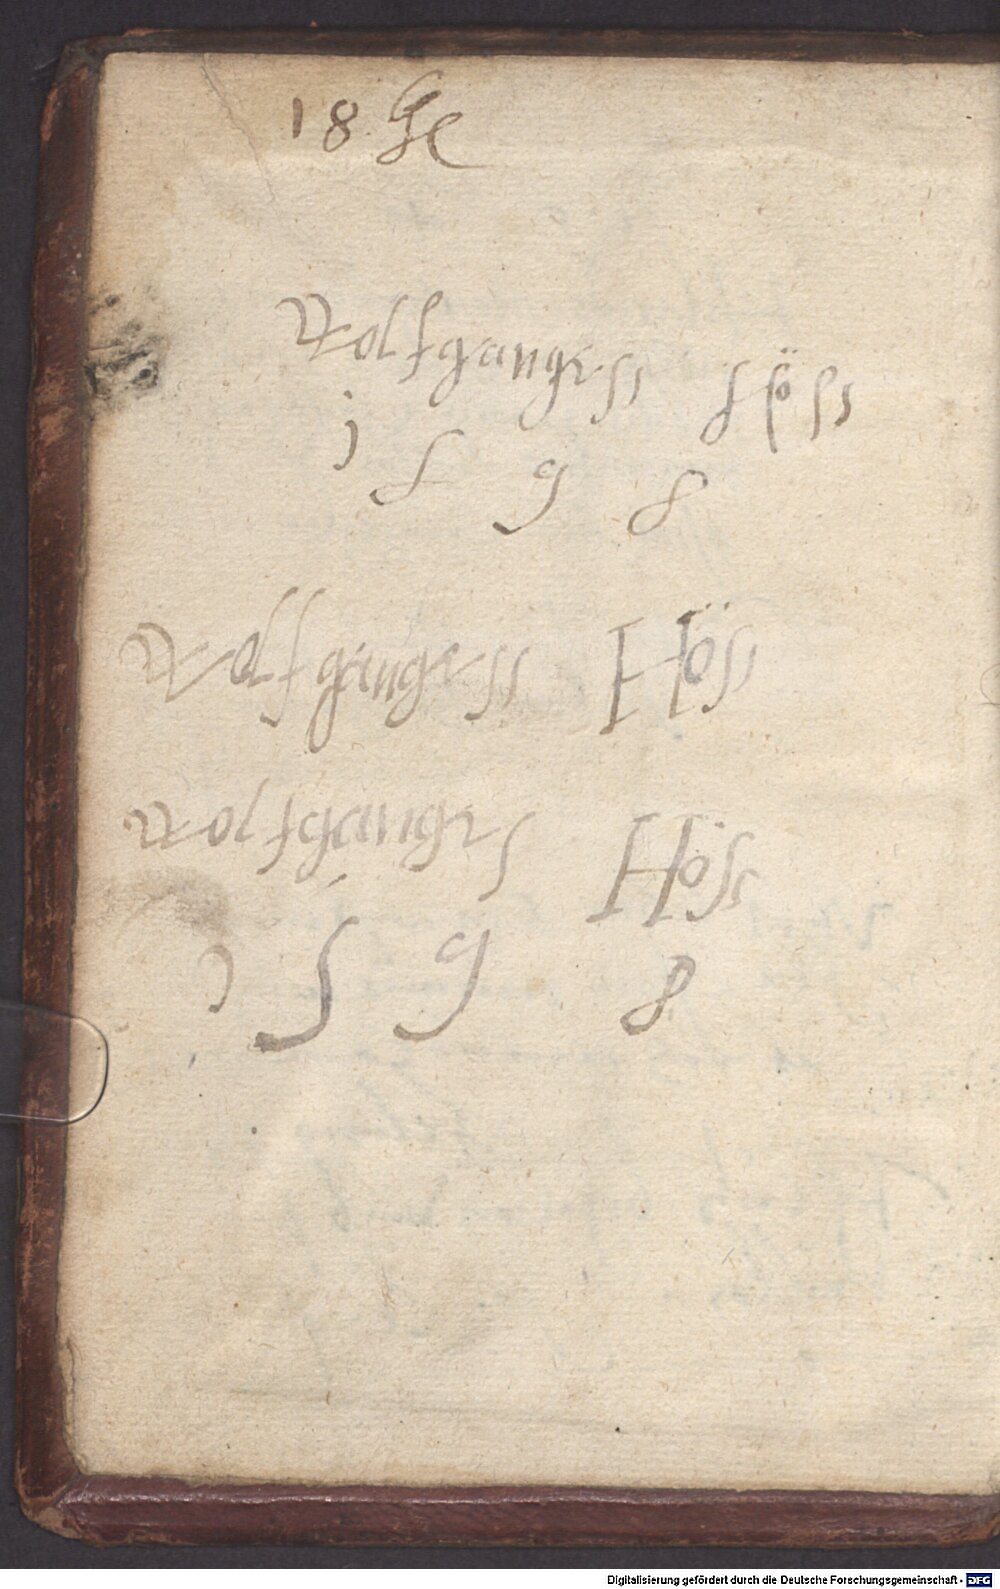 18.
Wolfganguss Höss
1 5 9 8
Wolffganguss Höss
Wolfgangus Höss
1 5 9 8
Digitalisierung gefördert durch die Deutsche Forschungsgemeinschaft - DFG